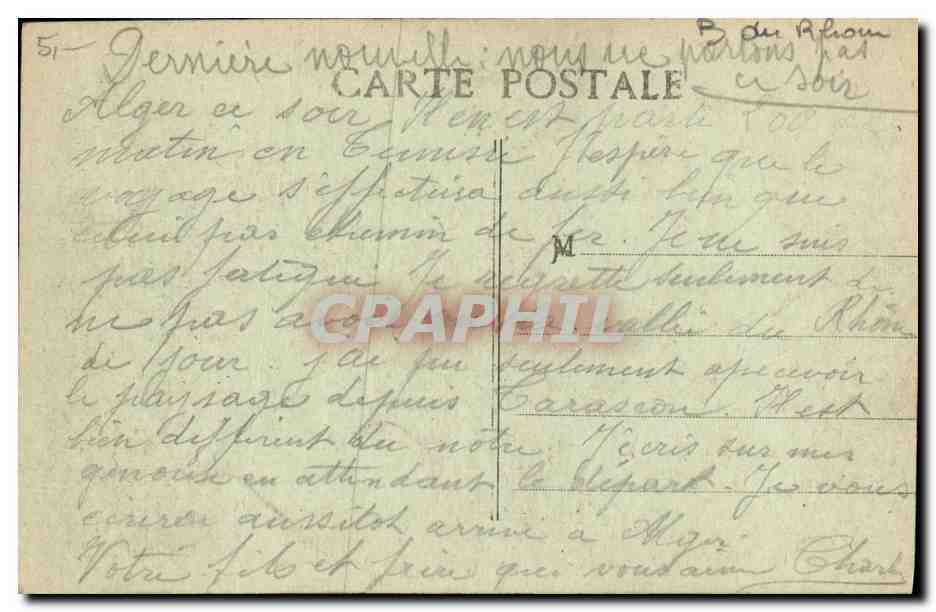 5,-
B du Rhone
Dernière nouvelle : nous ne partons pas
ce soir
CARTE POSTALE
Alger ce soir Il en est parti 800
matin en Tunisie J'espère que le
voyage s'effectuera aussi bien que
celui par chemin de fer. Je ne suis
M
pas fatigué Je regrette seulement de
ne pas avoir vu la vallée du Rhône
CPAPHIL
de jour. j'ai pu seulement apercevoir
le paysage depuis Tarascon. Il est
bien différent du nôtre. J'écris sur mes
genoux en attendant le départ. Je vous
écrirai aussitot arrivé à Alger.
Votre fils et frère qui vous aime Charles